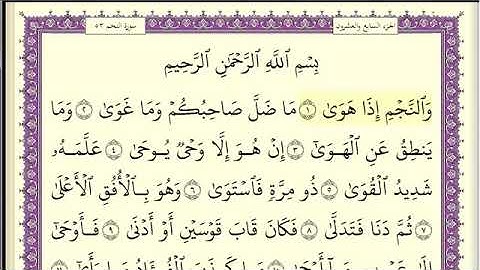 الجزء السابع والعشرون
سورة النجم ٥٣
بِسْمِ ٱللَّهِ ٱلرَّحْمَٰنِ ٱلرَّحِيمِ
وَٱلنَّجْمِ إِذَا هَوَىٰ ١ مَا ضَلَّ صَاحِبُكُمْ وَمَا غَوَىٰ ٢ وَمَا
يَنطِقُ عَنِ ٱلْهَوَىٰٓ ٣ إِنْ هُوَ إِلَّا وَحْىٌ يُوحَىٰ ٤ عَلَّمَهُۥ
شَدِيدُ ٱلْقُوَىٰ ٥ ذُو مِرَّةٍ فَٱسْتَوَىٰ ٦ وَهُوَ بِٱلْأُفُقِ ٱلْأَعْلَىٰ
٧ ثُمَّ دَنَا فَتَدَلَّىٰ ٨ فَكَانَ قَابَ قَوْسَيْنِ أَوْ أَدْنَىٰ ٩ فَأَوْحَىٰٓ